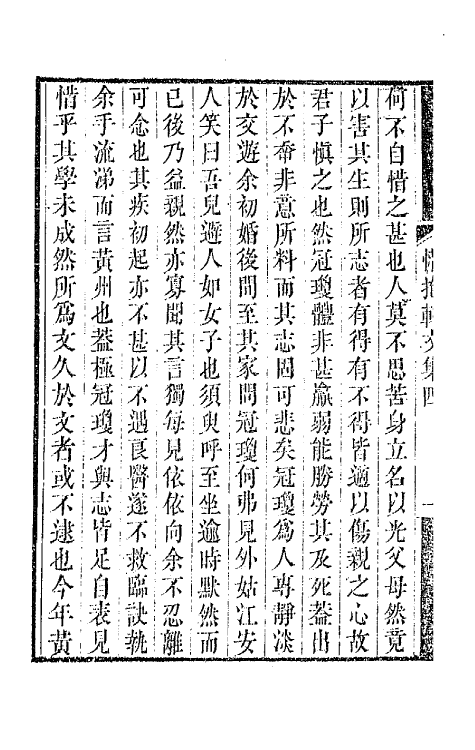 何不自惜之甚也人莫不思苦身立名以光父母然竟
以害其生則所志者有得有不得皆適以傷親之心故
君子慎之也然冠瓊體非甚羸弱能勝勞其及死葢出
於不帣非意所料而其志固可悲矣冠瓊為人專靜淡
於交遊余初婚後間至其家問冠瓊何弗見外姑江安
人笑曰吾兒避人如女子也須臾呼至坐逾時默然而
已後乃益親然亦寡聞其言獨每見依依向余不忍離
可念也其疾初起亦不甚以不遇良醫遂不救臨訣執
余手流涕而言黃州也葢極冠瓊才與志皆足自表見
惜乎其學未成然所為文久於文者或不逮也今年黃
惜抱軒文集四
一